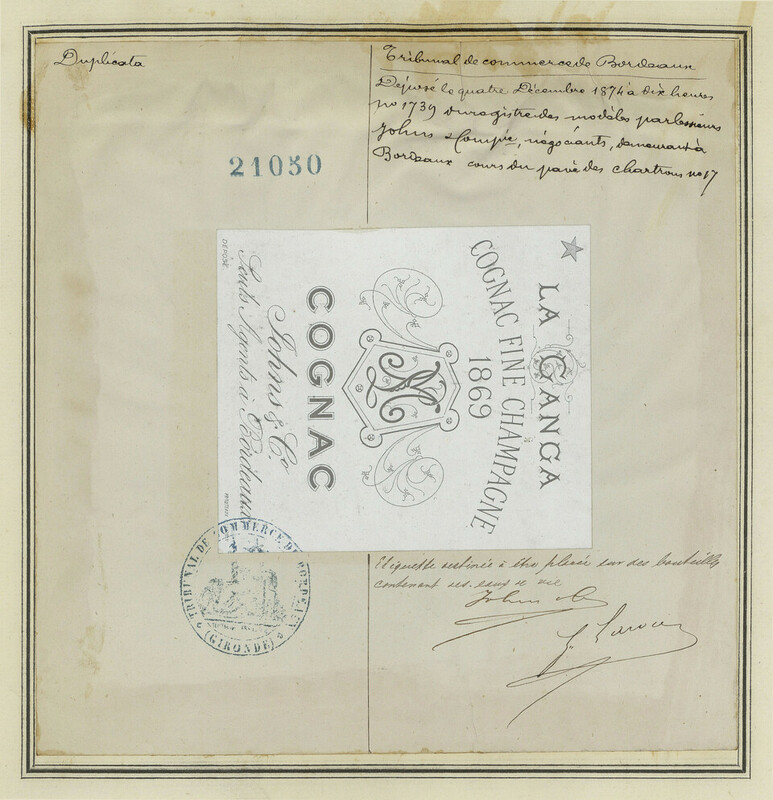 Duplicata
Tribunal de commerce de Bordeaux
Déposé le quatre Décembre 1874 à dix heures
no 1739 du registre des modèles par les sieurs
Johns & Compie, négociants, demeurant à
Bordeaux cours du pavé des chartrons no 17
21050
LA GANGA
COGNAC FINE CHAMPAGNE
1869
COGNAC
Johns & Co
Seuls Agents à Bordeaux
DÉPOSÉ
TRIBUNAL DE COMMERCE DE BORDEAUX
(GIRONDE)
Etiquette destinée à être placée sur des bouteilles
contenant des eaux de vie
Johns & Co